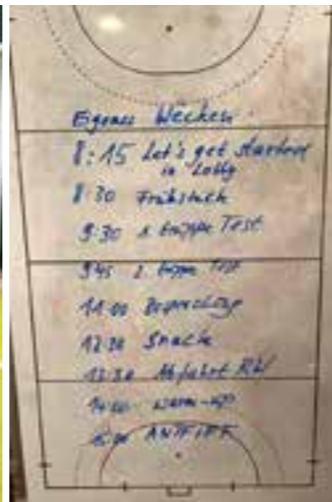 Eigenes Wecken
8:15 Let's get started
in Lobby
8:30 Frühstück
9:30 1. Gruppe Test
9:45 2. Gruppe Test
11:00 Besprechung
12:30 Snack
13:30 Abfahrt
14:00 warm-up
15:00 ANPFIFF